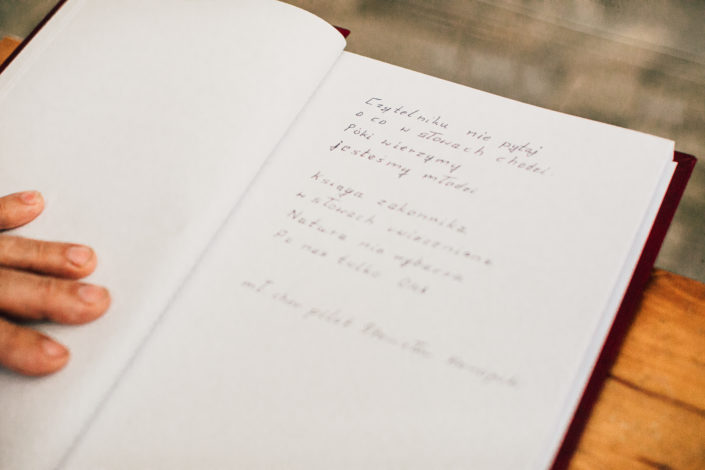 Czytelniku nie pytaj
o co w słowach chodzi
Póki wierzymy
jesteśmy młodzi
Księga zakonnika
w słowach uwięziona
Natura nie wybacza
Po nas tylko